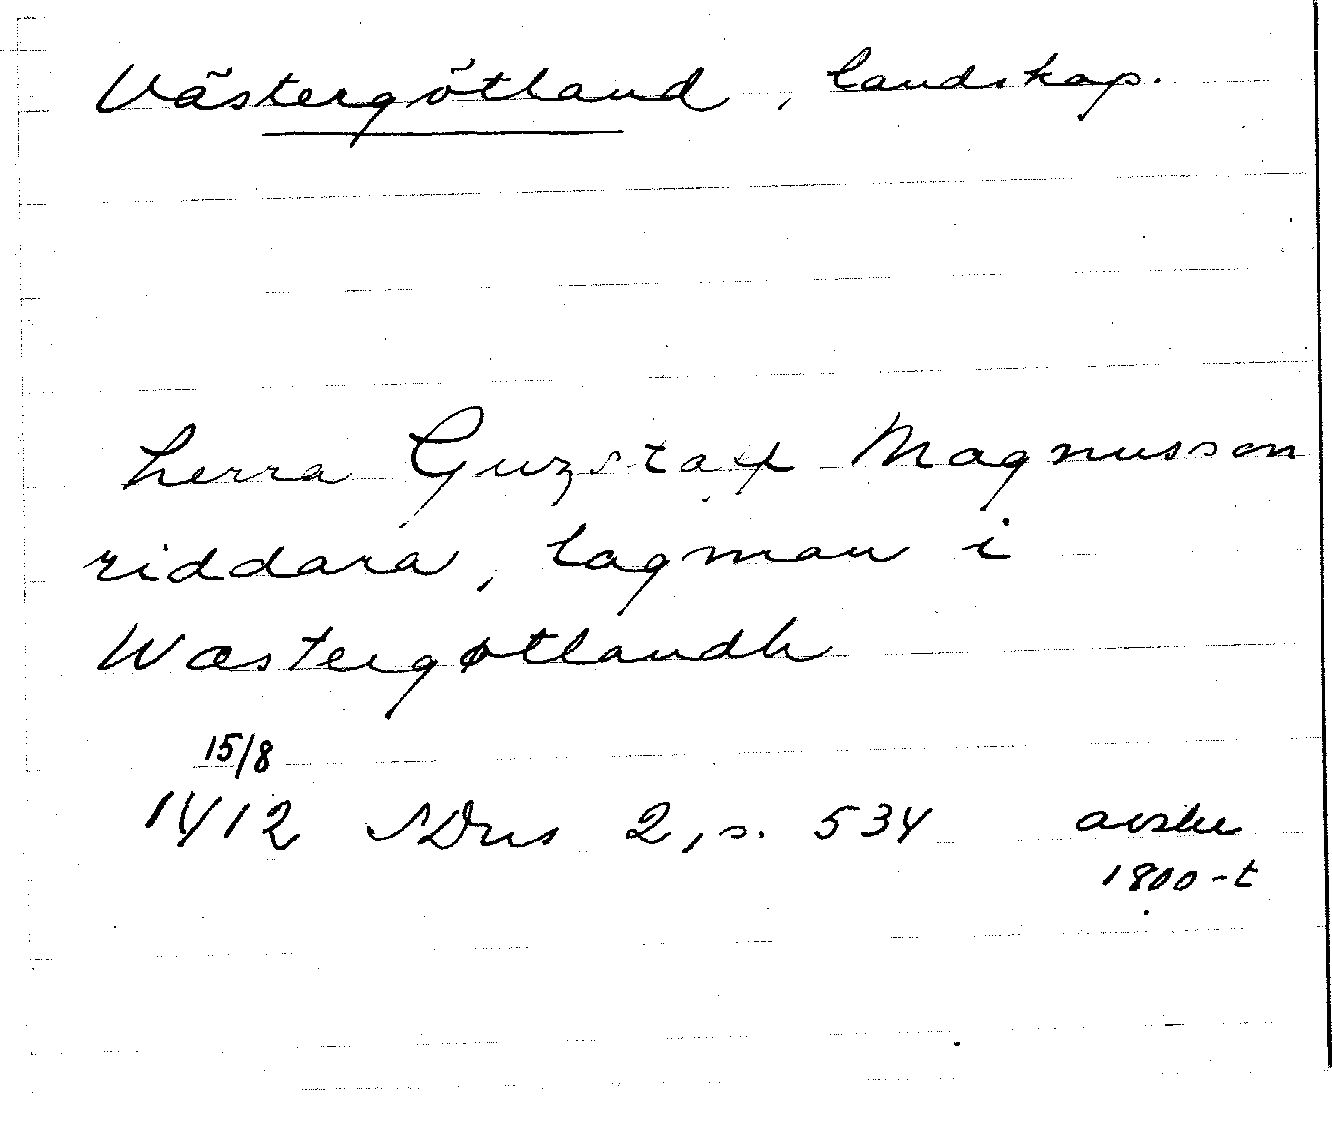 Västergötland, landskap.
herra Guzstaff Magnusson
riddara, lagman i
Wæstergøtlandh
15/8
1412 SDns 2, s. 534 avskr
1800-t